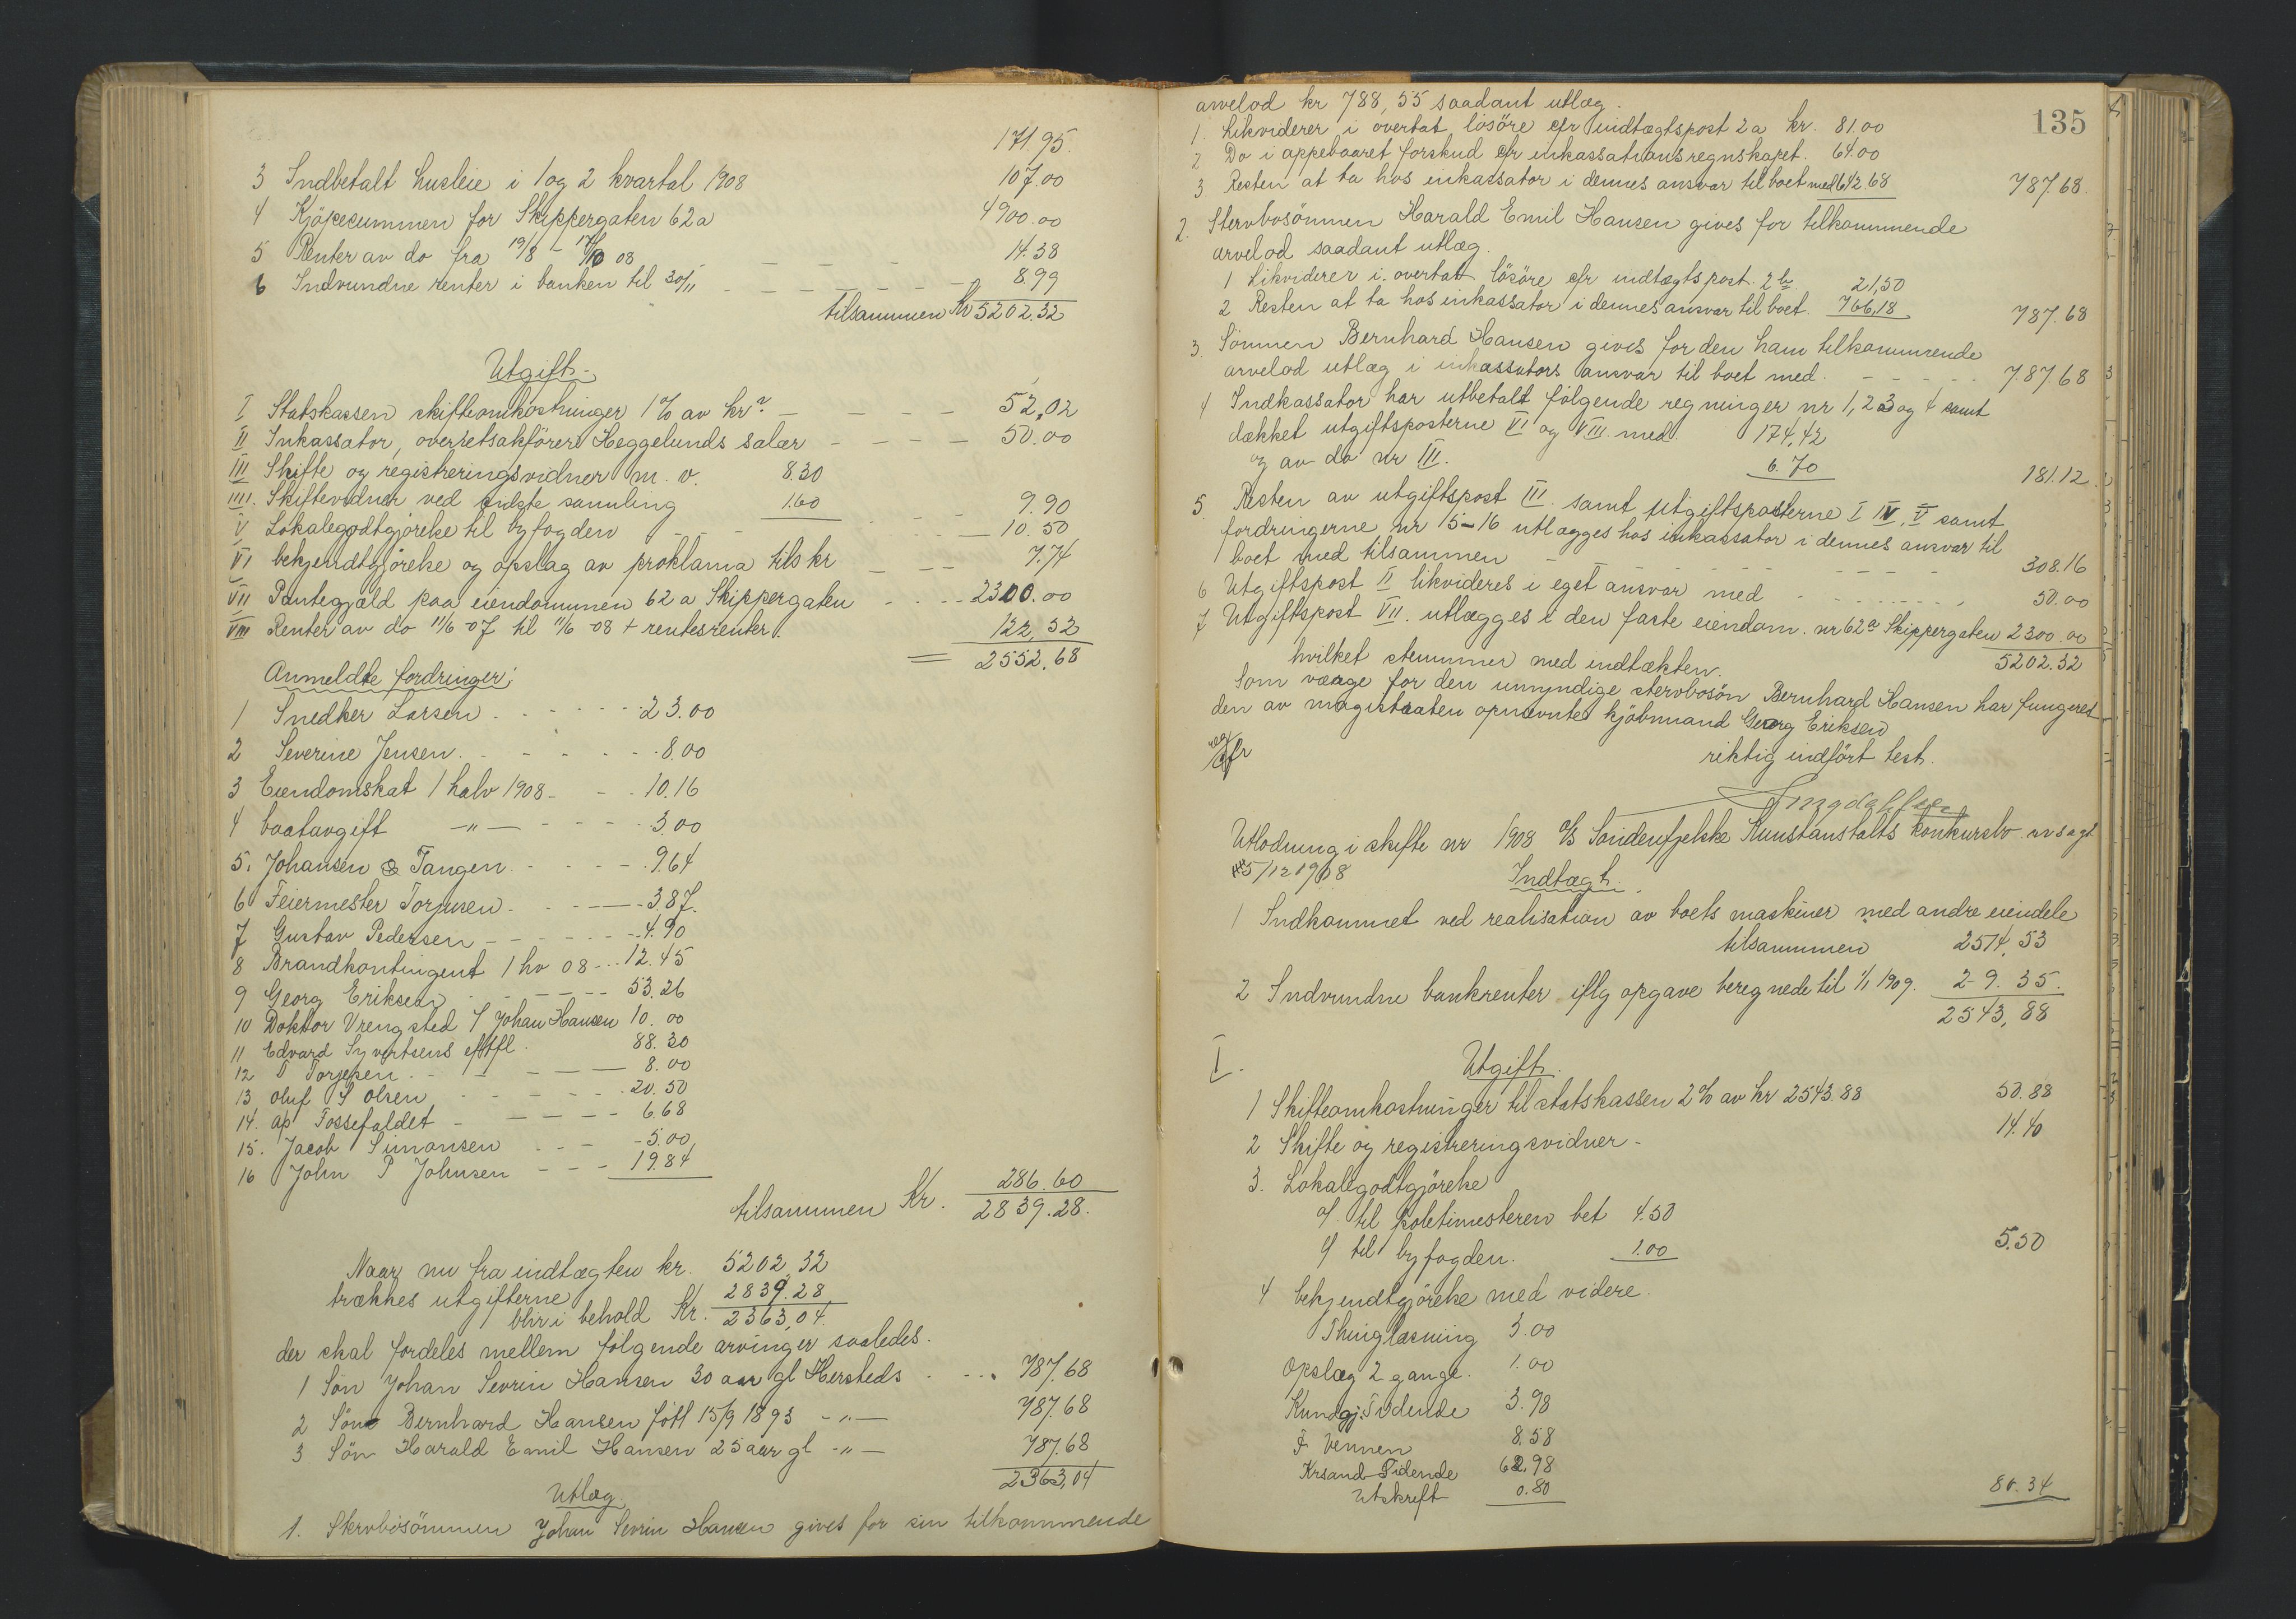 171.95.
3 Indbetalt husleie i 1 og 2 kvartal 1908 107.00
4 Kjöpesummen for Skippergaten 62a 4900.00
5 Renter av do fra 19/8 - 17/10 08 14.38
6 Indvundne renter i banken til 30/11 8.99
tilsammen Kr 5202.32
Utgift.
I Statskassen skifteomkostninger 1% av kr 52,02
II Inkassator, overretsakförer Heggelunds salær 50.00
III Skifte og registreringsvidner m. v. 8.30
IIII. Skiftevidner ved sidste samling 1.60 9.90
V Lokalegodtgjörelse til byfogden 10.50
VI bekjendtgjörelse og opslag av proklama tils kr 7.74
VII Pantegjæld paa eiendommen 62 a Skippergaten 2300.00
VIII Renter av do 11/6 -07 til 11/6 -08 + rentesrenter 122,52
= 2552.68
Anmeldte fordringer:
1 Snedker Larsen 23.00
2 Severine Jensen 8.00
3 Eiendomskat 1 halv 1908 10.16
4 baatavgift -"- 3.00
5. Johansen & Tangen 9.64
6 Feiermester Torjusen 3 87.
7 Gustav Pedersen 4.90
8 Brandkontingent 1 hv 08 12.45
9 Georg Eriksen 53.26
10 Doktor Vrengsted f Johan Hansen 10.00
11 Edvard Syvertsens eftfl. 88.30
12 T Torjesen 8.00
13 Oluf S Olsen 20.50
14. ap Fossefaldet 6.68
15. Jacob Simonsen 5.00
16 John P Johnsen 19.84
286.60
tilsammen Kr. 2839.28.
Naar nu fra indtægten kr. 5202,32
trækkes utgifterne 2839.28
blir i behold Kr. 2363,04.
der skal fordeles mellem fölgende arvinger saaledes.
1 Sön Johan Sevrin Hansen 30 aar gl Hersteds 787.68
2 Sön Bernhard Hansen födt 15/9 1893 -"- 787.68
3 Sön Harald Emil Hansen 25 aar gl -"- 787.68
2363,04
Utlæg.
1. Stervbosönnen Johan Sevrin Hansen gives for sin tilkommende
135
arvelod kr 788,55 saadant utlæg.
1. Likviderer i overtat lösöre cfr indtægtspost 2 a kr. 81.00
2 Do i oppebaaret forskud cfr inkassationsregnskapet. 64.00
3 Resten at ta hos inkassator i dennes ansvar til boet med 642.68 787.68.
2. Stervbosönnen Harald Emil Hansen gives for tilkommende
arvelod saadant utlæg.
1 Likviderer i overtat lösöre cfr indtægtspost 2 b 21,50
2 Resten at ta hos inkassator i dennes ansvar til boet. 766,18 787.68
3. Sönnen Bernhard Hansen gives for den ham tilkommende
arvelod utlæg i inkassators ansvar til boet med. 787.68
4 Indkassator har utbetalt fölgende regninger nr 1, 2 3 og 4 samt
dækket utgiftsposterne VI og VIII med. 174,42
og av do nr III. 6.70 181.12
5. Resten av utgiftspost III. samt utgiftsposterne I IV, V samt
fordringerne nr 15-16 utlægges hos inkassator i dennes ansvar til
boet med tilsammen 308.16
6 Utgiftspost II likvideres i eget ansvar med 50.00
7 Utgiftspost VII. utlægges i den faste eiendom. nr 62 a Skippergaten 2300.00
5202.32
hvilket stemmer med indtækten.
Som værge for den umyndige stervbosön Bernhard Hansen har fungeret
den av magistraten opnævnte kjöbmand Georg Eriksen
riktig indfört test.
Utlodning i skifte nr 1908 A/S Söndenfjelske Kunstanstalts konkursbo avsagt
5/12 1908
Indtægt.
1 Indkommet ved realisation av boets maskiner med andre eiendele
tilsammen 2514,53
2 Indvundne bankrenter iflg opgave beregnede til 1/1 1909. 29.35.
2543,88
I. Utgift.
1 Skifteomkostninger til statskassen 2% av kr 2543.88 50.88
2 Skifte og registreringsvidner 14.40
3. Lokalegodtgjörelse
a/ til politimesteren bet 4.50
b/ til byfogden. 1.00 5.50
4 bekjendtgjörelse med videre.
Thinglæsning 3.00
Opslag 2 gange. 1.00
Kundgj. Tidende 3.98
F Vennen 8.58
Krsand Tidende 62,98
Utskrift 0.80 80.34